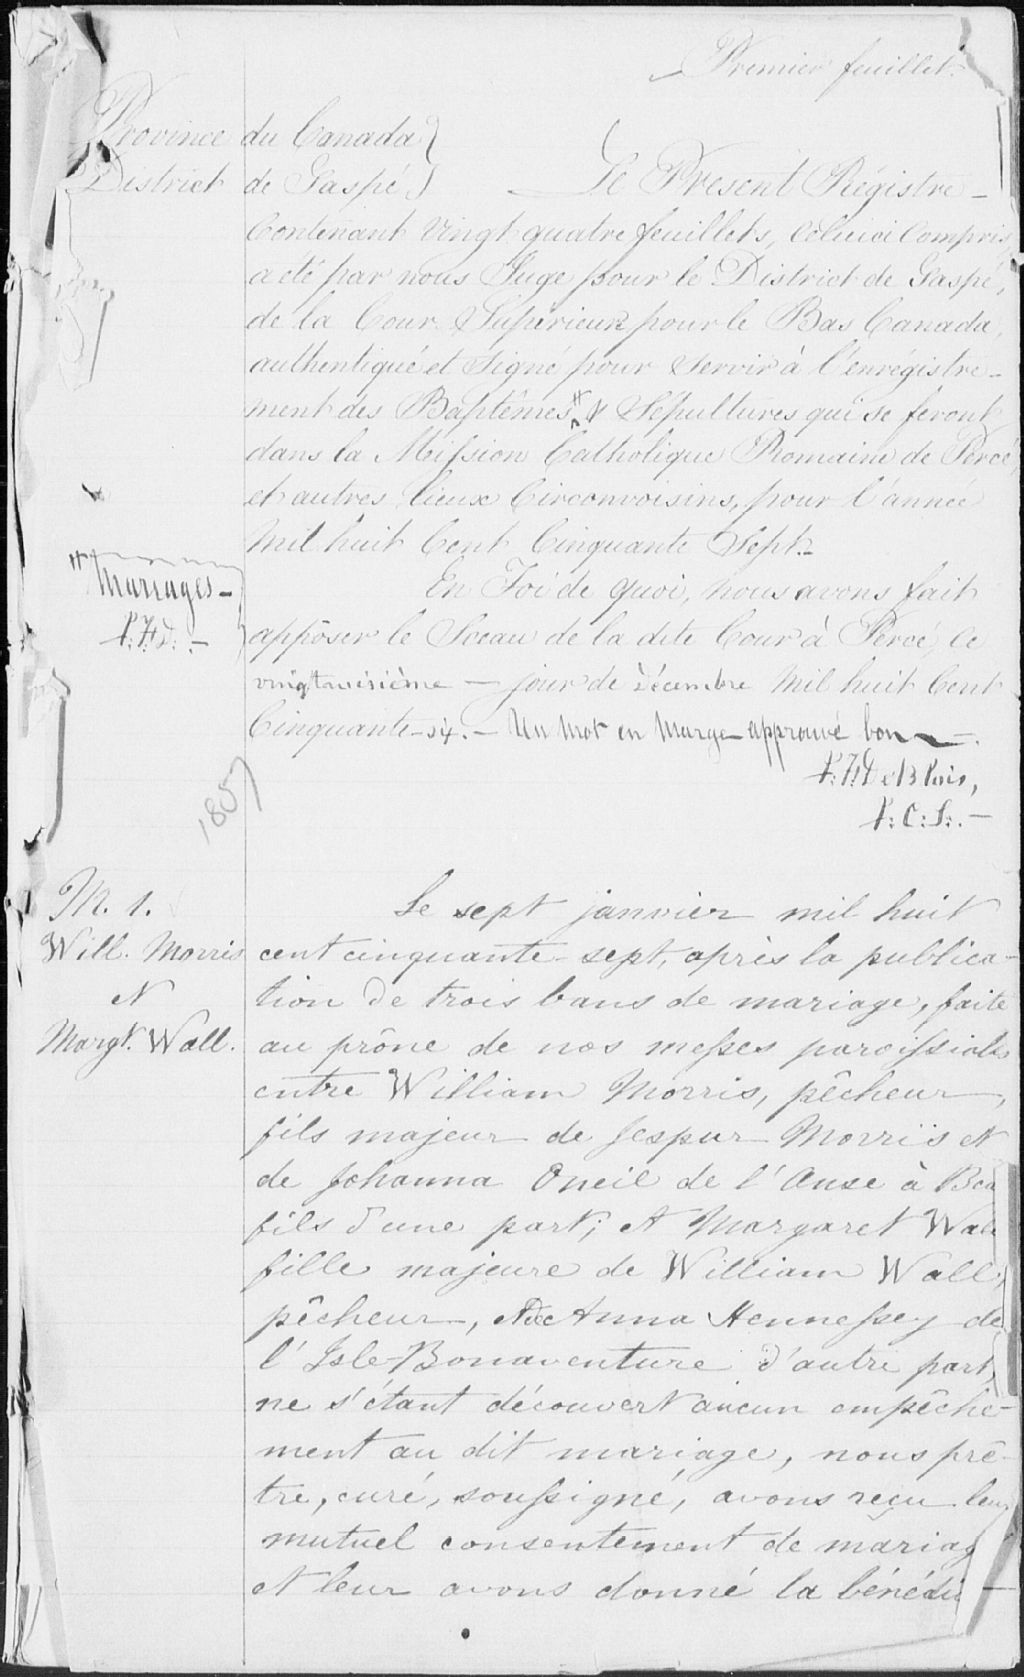 Premier feuillet.
Province du Canada }
District de Gaspé }
Le Présent Régistre -
Contenant Vingt quatre feuillets, celui ici Compris,
a été par nous Juge pour le District de Gaspé,
de la Cour Supérieure pour le Bas Canada,
authentiqué et Signé pour servir à l'enrégistre-
ment des Baptêmes # & Sépultures qui se feront
dans la Mission Catholique Romaine de Percé
et autres lieux Circonvoisins, pour l'année
Mil huit Cent Cinquante Sept. -
En Foi de quoi, nous avons fait
appôser le Sceau de la dite Cour à Percé, le
vingt troisième - jour de Décembre Mil huit Cent
Cinquante-six. - Un mot en marge approuvé bon -.
# Mariages -
P.:F.:D.: -
P.:F.:DeBlois,
J.:C.:S.: -
1857
M. 1.
Will. Morris
et
Margt. Wall.
Le sept janvier mil huit
cent cinquante-sept, après la publica-
tion de trois bans de mariage, faite
au prône de nos messes paroissiales
entre William Morris, pêcheur,
fils majeur de Jespur Morris et
de Johanna Oneil de l'Anse à Bea
fils d'une part; et Margaret Wall
fille majeure de William Wall,
pêcheur, et de Anna Hennessey de
l'Isle-Bonaventure d'autre part,
ne s'étant découvert aucun empêche-
ment au dit mariage, nous prê-
tre, curé, soussigné, avons reçu leur
mutuel consentement de mariag
et leur avons donné la bénédi